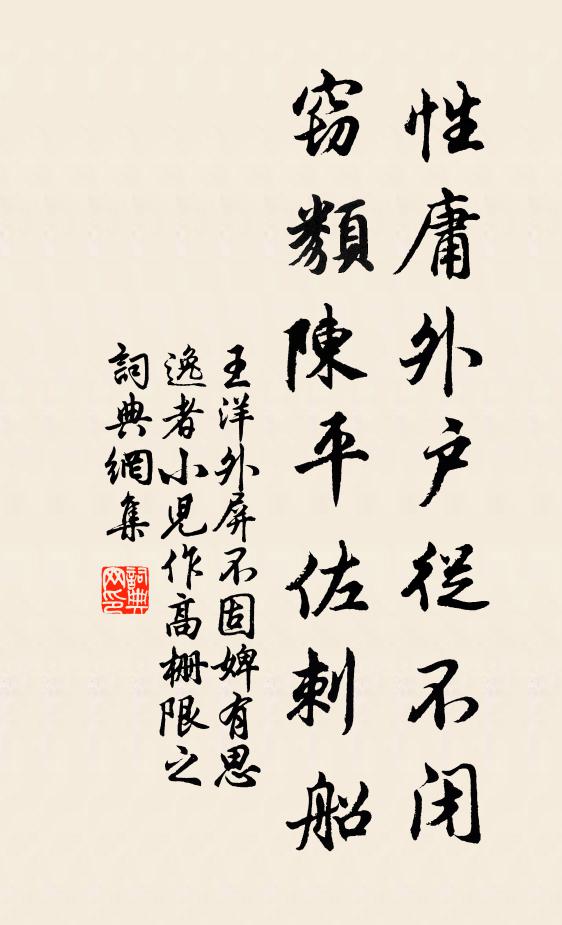 性庸外户從不闭
窃類陳平佐刺船
王洋外屏不固婢有思
逸者小兒作高栅限之
詞典網集
詞典
网印